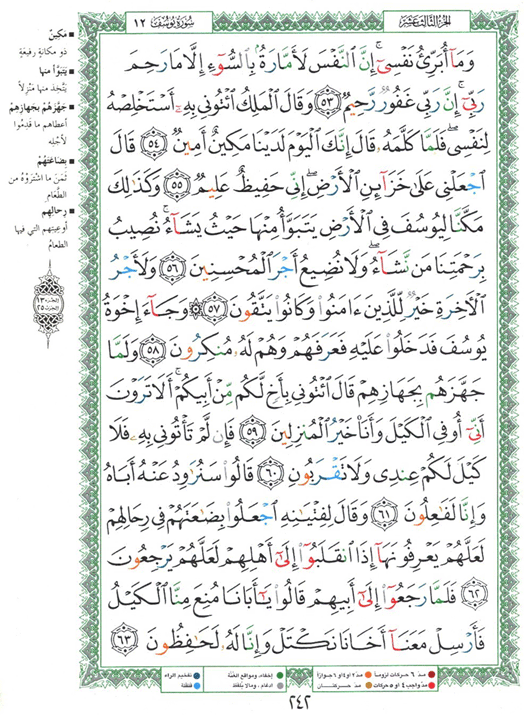 الجزء الثالث عشر
سورة يوسف ١٢
وَمَآ أُبَرِّئُ نَفْسِىٓ ۚ إِنَّ ٱلنَّفْسَ لَأَمَّارَةٌۢ بِٱلسُّوٓءِ إِلَّا مَا رَحِمَ
رَبِّىٓ ۚ إِنَّ رَبِّى غَفُورٌ رَّحِيمٌ ٥٣ وَقَالَ ٱلْمَلِكُ ٱئْتُونِى بِهِۦٓ أَسْتَخْلِصْهُ
لِنَفْسِى ۖ فَلَمَّا كَلَّمَهُۥ قَالَ إِنَّكَ ٱلْيَوْمَ لَدَيْنَا مَكِينٌ أَمِينٌ ٥٤ قَالَ
ٱجْعَلْنِى عَلَىٰ خَزَآئِنِ ٱلْأَرْضِ ۖ إِنِّى حَفِيظٌ عَلِيمٌ ٥٥ وَكَذَٰلِكَ
مَكَّنَّا لِيُوسُفَ فِى ٱلْأَرْضِ يَتَبَوَّأُ مِنْهَا حَيْثُ يَشَآءُ ۚ نُصِيبُ
بِرَحْمَتِنَا مَن نَّشَآءُ ۖ وَلَا نُضِيعُ أَجْرَ ٱلْمُحْسِنِينَ ٥٦ وَلَأَجْرُ
ٱلْـَٔاخِرَةِ خَيْرٌ لِّلَّذِينَ ءَامَنُوا۟ وَكَانُوا۟ يَتَّقُونَ ٥٧ ۞ وَجَآءَ إِخْوَةُ
يُوسُفَ فَدَخَلُوا۟ عَلَيْهِ فَعَرَفَهُمْ وَهُمْ لَهُۥ مُنكِرُونَ ٥٨ وَلَمَّا
جَهَّزَهُم بِجَهَازِهِمْ قَالَ ٱئْتُونِى بِأَخٍ لَّكُم مِّنْ أَبِيكُمْ ۚ أَلَا تَرَوْنَ
أَنِّىٓ أُوفِى ٱلْكَيْلَ وَأَنَا۠ خَيْرُ ٱلْمُنزِلِينَ ٥٩ فَإِن لَّمْ تَأْتُونِى بِهِۦ فَلَا
كَيْلَ لَكُمْ عِندِى وَلَا تَقْرَبُونِ ٦٠ قَالُوا۟ سَنُرَٰوِدُ عَنْهُ أَبَاهُ
وَإِنَّا لَفَـٰعِلُونَ ٦١ وَقَالَ لِفِتْيَـٰنِهِ ٱجْعَلُوا۟ بِضَـٰعَتَهُمْ فِى رِحَالِهِمْ
لَعَلَّهُمْ يَعْرِفُونَهَآ إِذَا ٱنقَلَبُوٓا۟ إِلَىٰٓ أَهْلِهِمْ لَعَلَّهُمْ يَرْجِعُونَ
٦٢ فَلَمَّا رَجَعُوٓا۟ إِلَىٰٓ أَبِيهِمْ قَالُوا۟ يَـٰٓأَبَانَا مُنِعَ مِنَّا ٱلْكَيْلُ
فَأَرْسِلْ مَعَنَآ أَخَانَا نَكْتَلْ وَإِنَّا لَهُۥ لَحَـٰفِظُونَ ٦٣
مَكِينٌ
ذو مكانةٍ رفيعةٍ
يَتَبَوَّأُ منها
يتّخذ منها منزلاً
جَهّزَهُمْ بجَهازِهِمْ
أعطاهم ما قدِموا
لأجْلِه
بِضَاعَتَهُمْ
ثمن ما اشتروْه من
الطّعام
رِحالِهِم
أوعيتهم التي فيها
الطعامُ
الجزء ١٣
الحزب ٢٥
مدّ ٦ حركات لزوماً
مدّ ٢ أو ٤ أو ٦ جوازاً
إخفاء، ومواقع الغُنّة
تفخيم الراء
مدّ واجب ٤ أو ٥ حركات
مدّ حركتان
إدغام، وما لا يُلفظ
قلقلة
٢٤٢